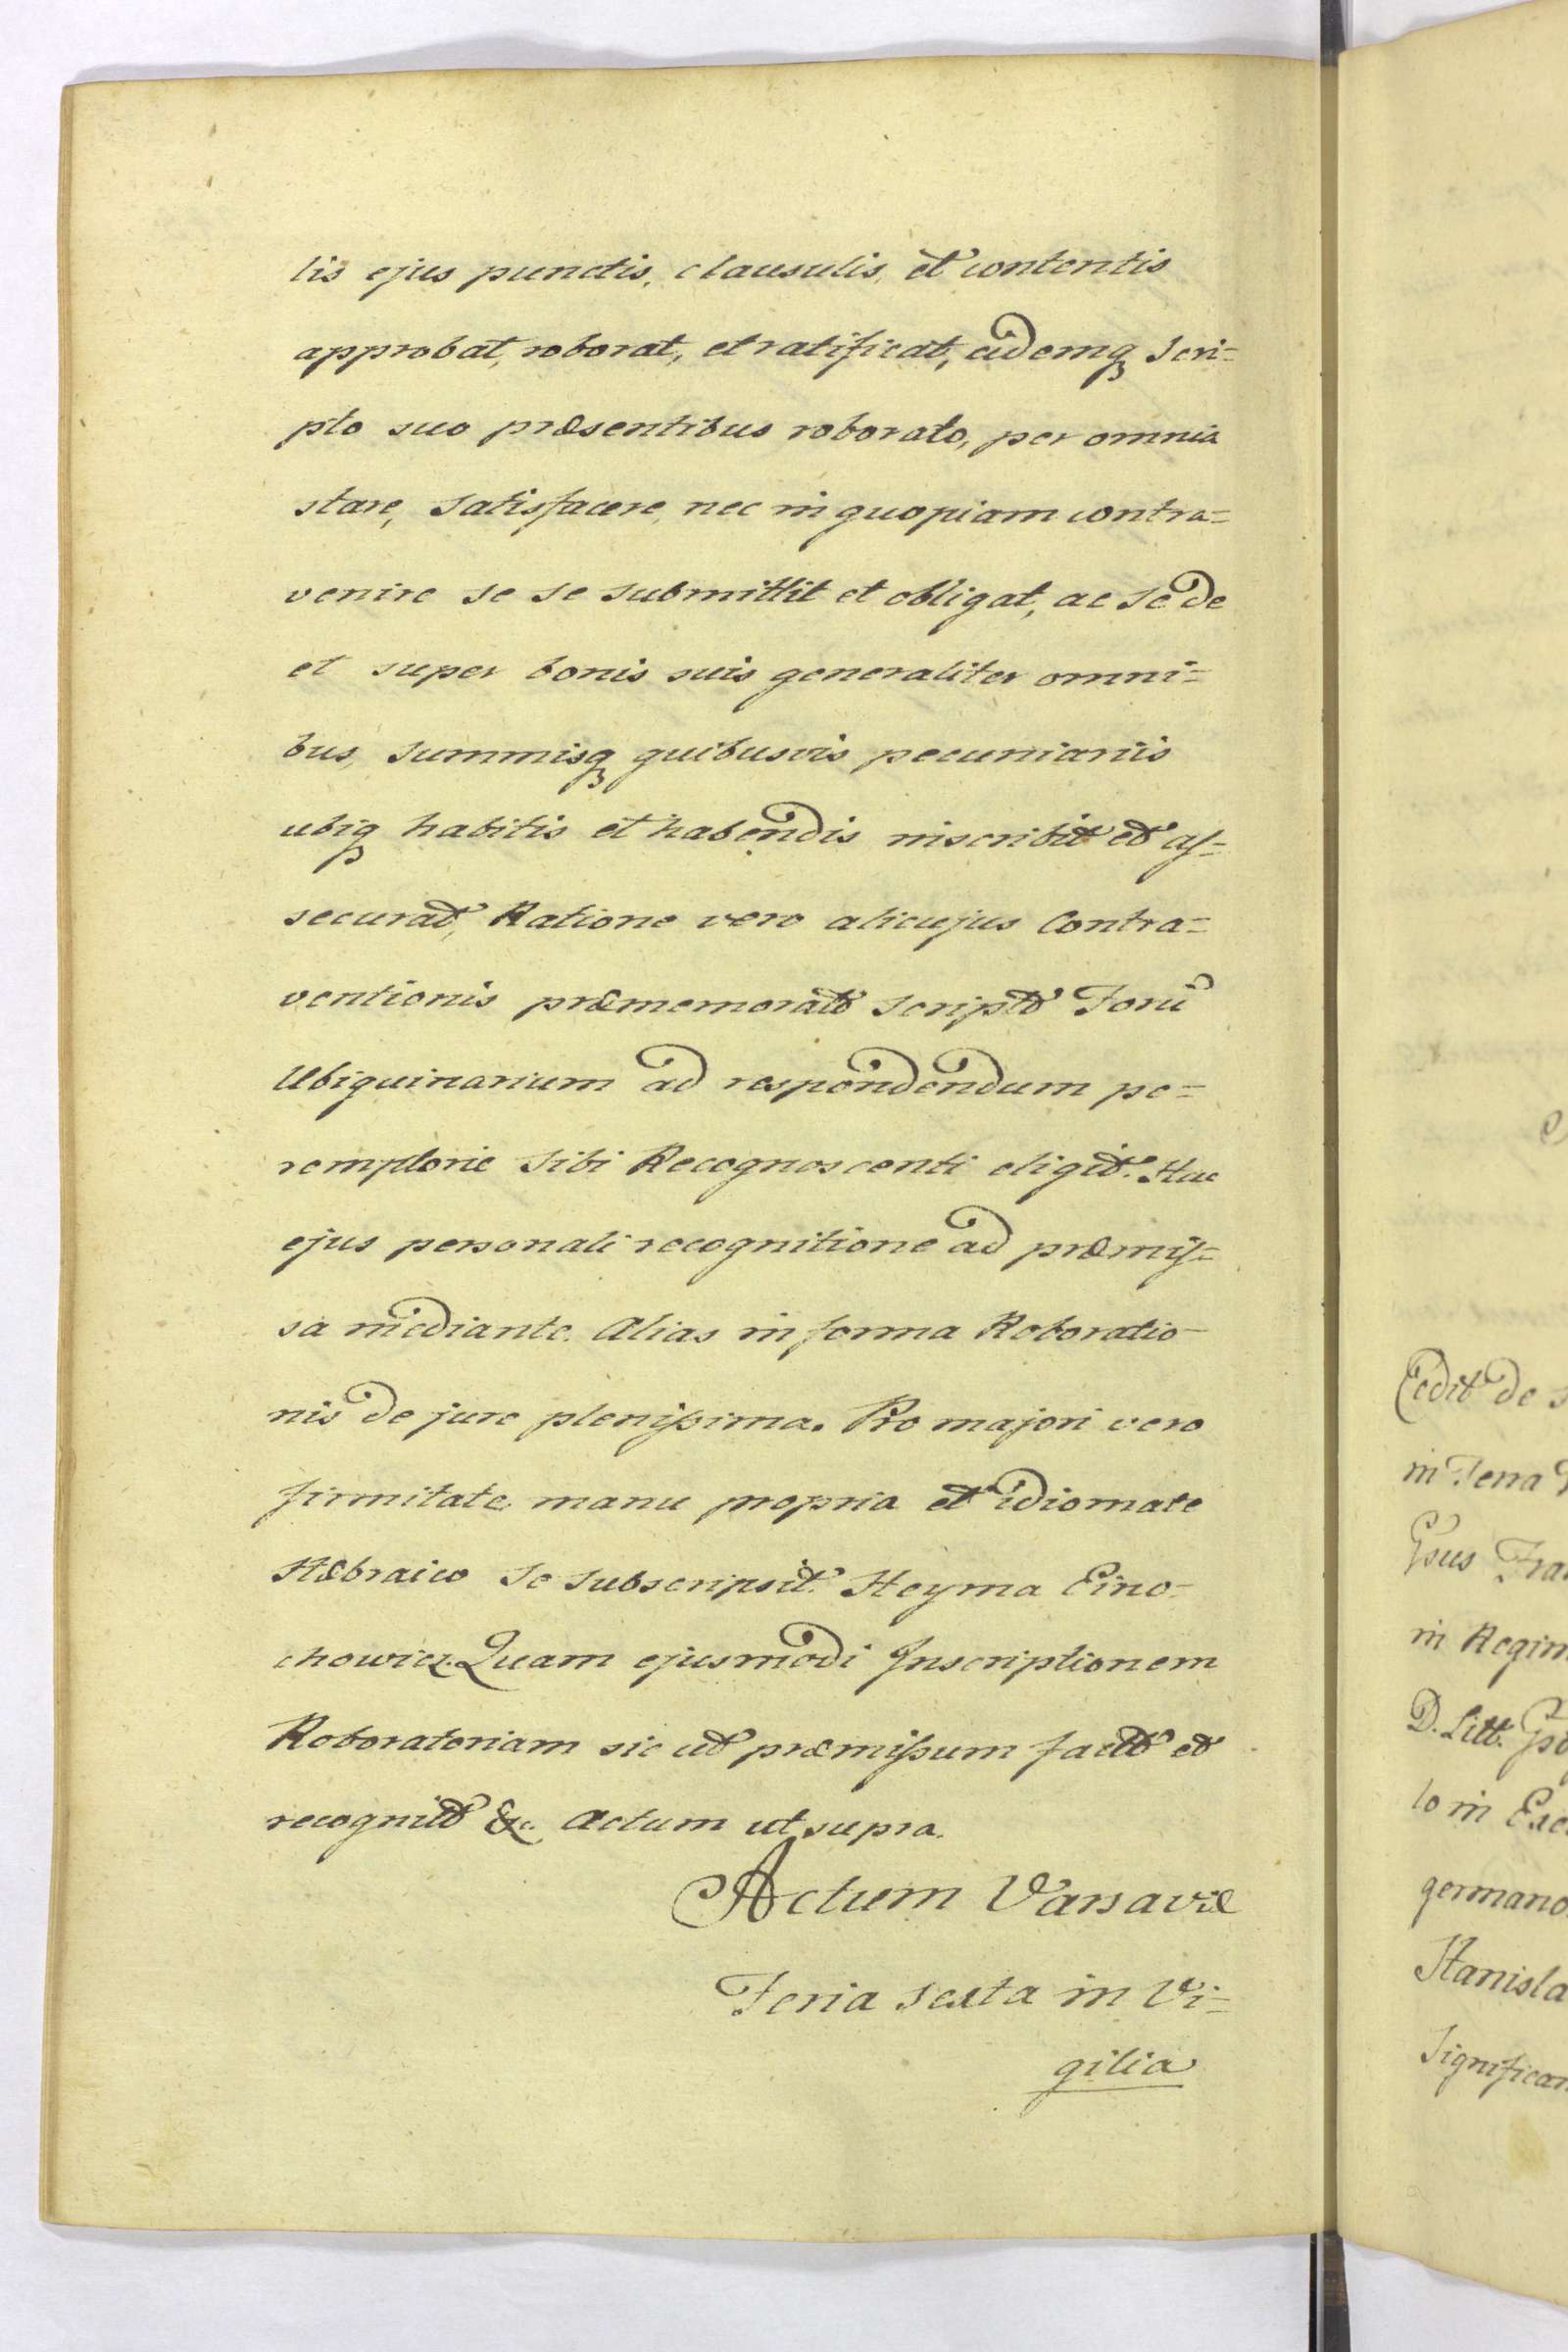 lis ejus punctis, clausulis, et contentis
approbat, roborat, et ratificat, eidemq Scri=
pto suo præsentibus roborato, per omnia
stare, Satisfacere, nec in quopiam contra=
venire se se submittit et obligat, ac se de
et super bonis suis generaliter omni=
bus, Summisq quibusvis pecuniariis
ubiq habitis et habendis inscribit et as=
securat, Ratione vero alicujus Contra=
ventionis præmemorato scripto Forū
Ubiquinarium ad respondendum pe=
remptorie Sibi Recognoscenti eligit. Hac
ejus personali recognitione ad præmis=
sa mediante. Alias in forma Roboratio=
nis de jure plenissima. Pro majori vero
firmitate manu propria et idiomate
Hæbraico se subscripsit. Heyma Eino=
chowicz. Quam ejusmodi Inscriptionem
Roboratoriam sic ut præmissum factt et
recognitt &c. Actum ut supra.
Actum Varsaviæ
Feria Sexta in Vi=
gilia
Cedit de
in Terra
Gsus Fra
in Regim
D. Litt.
lo in Exc
germano
Stanisla
Significan